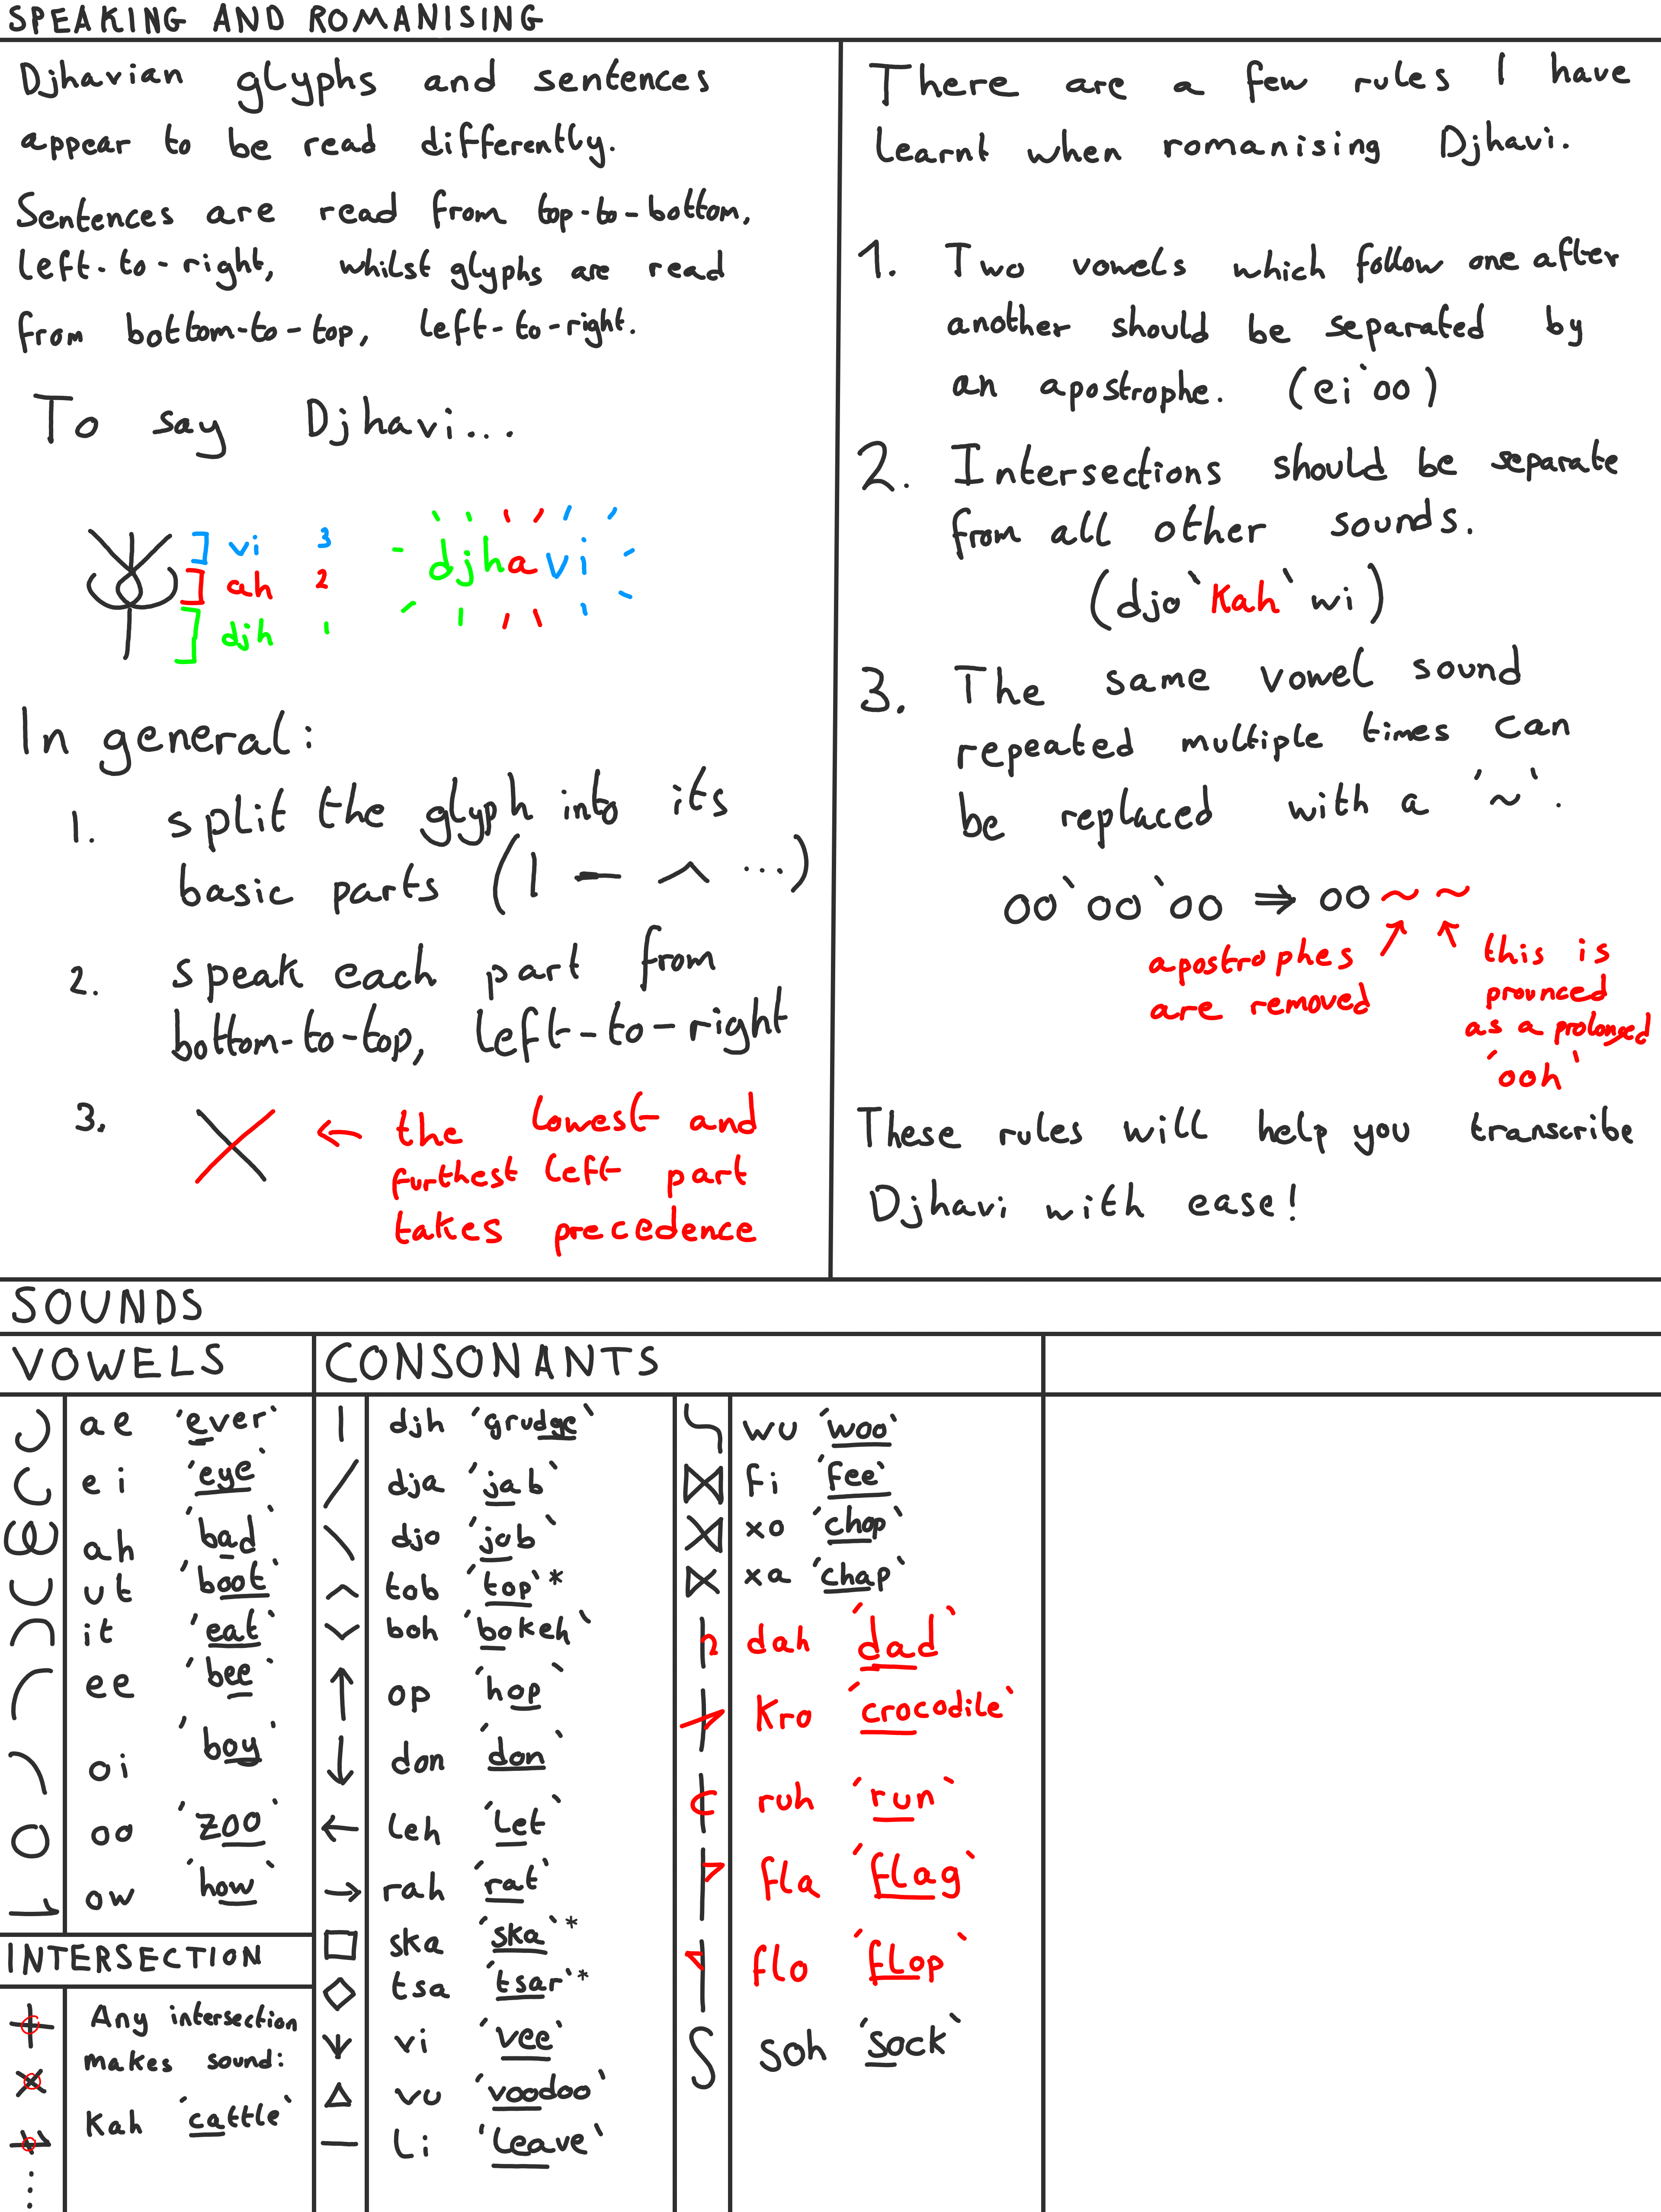 SPEAKING AND ROMANISING
Djhavian glyphs and sentences
appear to be read differently.
Sentences are read from top-to-bottom,
left-to-right, whilst glyphs are read
from bottom-to-top, left-to-right.
To say Djhavi...
] vi 3
] ah 2
] djh 1
djhavi
In general:
1. split the glyph into its
basic parts (| — ︿ ...)
2. speak each part from
bottom-to-top, left-to-right
3. ← the lowest and
furthest left part
takes precedence
There are a few rules I have
learnt when romanising Djhavi.
1. Two vowels which follow one after
another should be separated by
an apostrophe. (ei`oo)
2. Intersections should be separate
from all other sounds.
(djo`kah`wi)
3. The same vowel sound
repeated multiple times can
be replaced with a '~'.
oo`oo`oo ⇒ oo~~
apostrophes
are removed
this is
prounced
as a prolonged
'ooh'
These rules will help you transcribe
Djhavi with ease!
SOUNDS
VOWELS
ae 'ever`
ei 'eye`
ah 'bad`
ut 'boot`
it 'eat`
ee 'bee`
oi 'boy`
oo 'zoo`
ow 'how`
INTERSECTION
Any intersection
makes sound:
Kah 'cattle`
CONSONANTS
djh 'grudge`
dja 'jab`
djo 'job`
tob 'top`*
boh 'bokeh`
op 'hop`
don 'don`
leh 'let`
rah 'rat`
ska 'ska`*
tsa 'tsar`*
vi 'vee`
vu 'voodoo`
li 'leave`
wu 'woo`
fi 'fee`
xo 'chop`
xa 'chap`
dah 'dad`
kro 'crocodile`
ruh 'run`
fla 'flag`
flo 'flop`
soh 'sock`